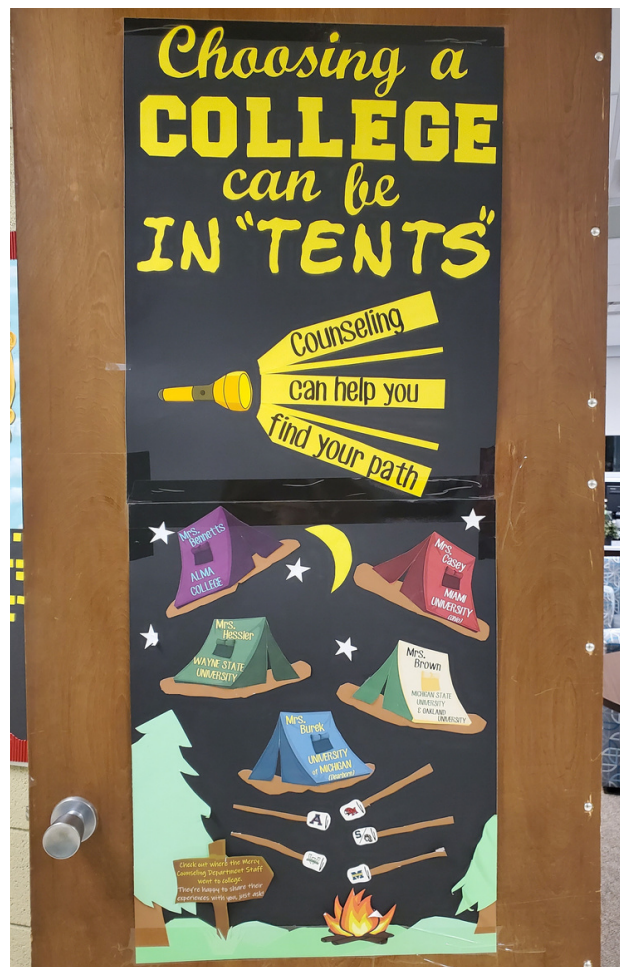 Choosing a
COLLEGE
can be
IN "TENTS"
Counseling
can help you
find your path
Mrs.
Bennetts
ALMA
COLLEGE
Mrs.
Casey
MIAMI
UNIVERSITY
(OHIO)
Mrs.
Hessler
WAYNE STATE
UNIVERSITY
Mrs.
Brown
MICHIGAN STATE
UNIVERSITY
& OAKLAND
UNIVERSITY
Mrs.
Burek
UNIVERSITY
OF MICHIGAN
(Dearborn)
A
S
M
Check out where the Mercy
Counseling Department Staff
went to college.
They're happy to share their
experiences with you, just ask!